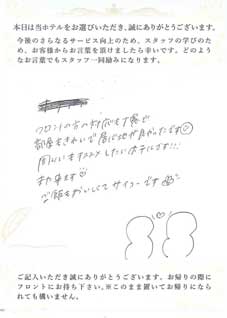 本日は当ホテルをお選びいただき、誠にありがとうございます。
今後のさらなるサービス向上のため、スタッフの学びのた
め、お客様からお言葉を頂けましたら幸いです。どのよう
なお言葉でもスタッフ一同励みになります。
フロントの方の対応も丁寧で
部屋もきれいで居心地が良かったです
同じいもオススメしたいホテルです!!
また来ます
ご飯もおいしくてサイコーです
ご記入いただき誠にありがとうございます。お帰りの際に
フロントにお持ち下さい。※このまま置いてお帰りになら
れても構いません。